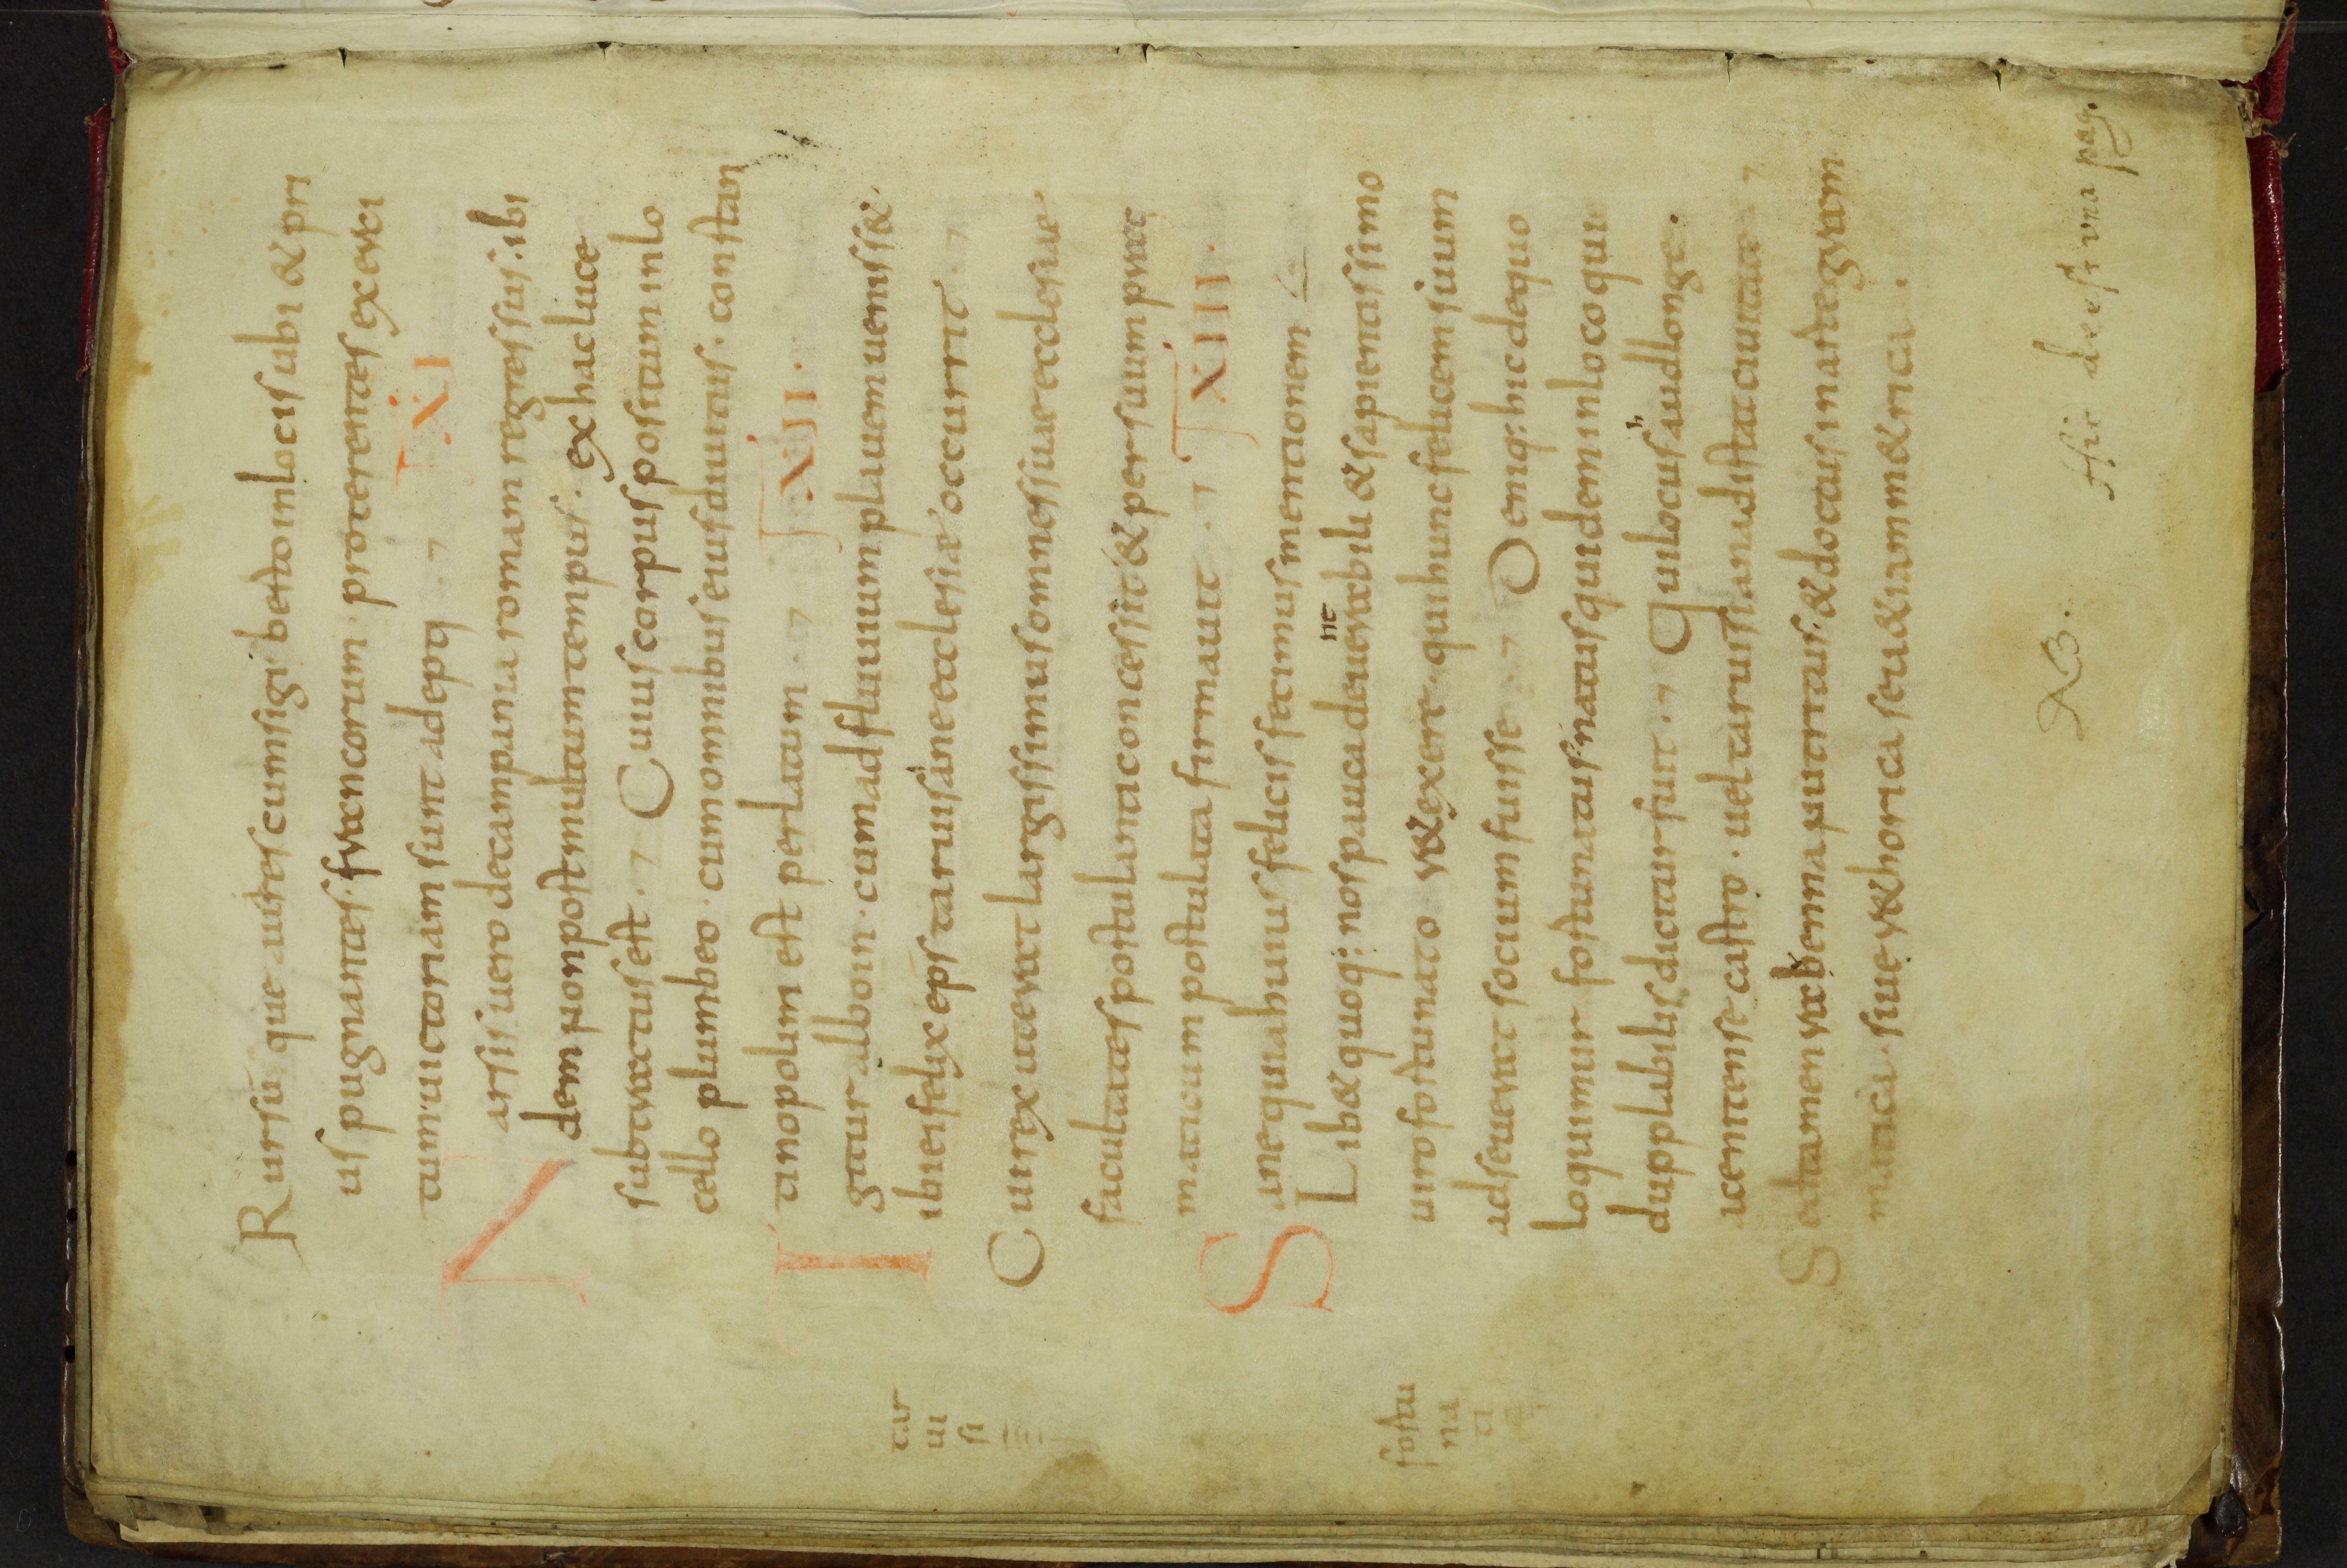 Rursū que aut̄res cum sigiberto in locis ubi & pri
us pugnantes. francorum. proterentes exerci
tum uictoriam sunt adepti
XI
Narsis uero de campania romam regressus. ibi
dem non post multum tempus. ex hac luce
subtractus est. Cuius corpus positum in lo
cello plumbeo. cum omnibus eius diuitiis. constan
tinopolim est perlatum.
XII.
Igitur alboin. cum ad fluuium plauem uenisset.
ibi ei felix eps taruisiane ecclesiae occurrit.
tar
ui
si
Cui rex ut erat largissimus omnes suae ecclesiae
facultates postulanti concessit & per suum prac
maticum postulata firmauit.
XIII.
Sane quia huius felicis fecimus mentionem
Lib& quoq: nos pauca de uenerabili & sapientissimo
uiro fostunato retexere. qui hunc felicem suum
fostu
na
ti
adseuerat socium fuisse. Denıq: hic de quo
loquimur fostunatus natus quidem in loco qui
dupplabilis dicitur fuit. Qui locus haud longe.
icentense castro. uel taruisiana distat ciuitate.
Sed tamen rabenna nutritus. & doctus in arte gram
matica. siue r&horica seu &iam m&rica.
NB. Hic deest una pag.